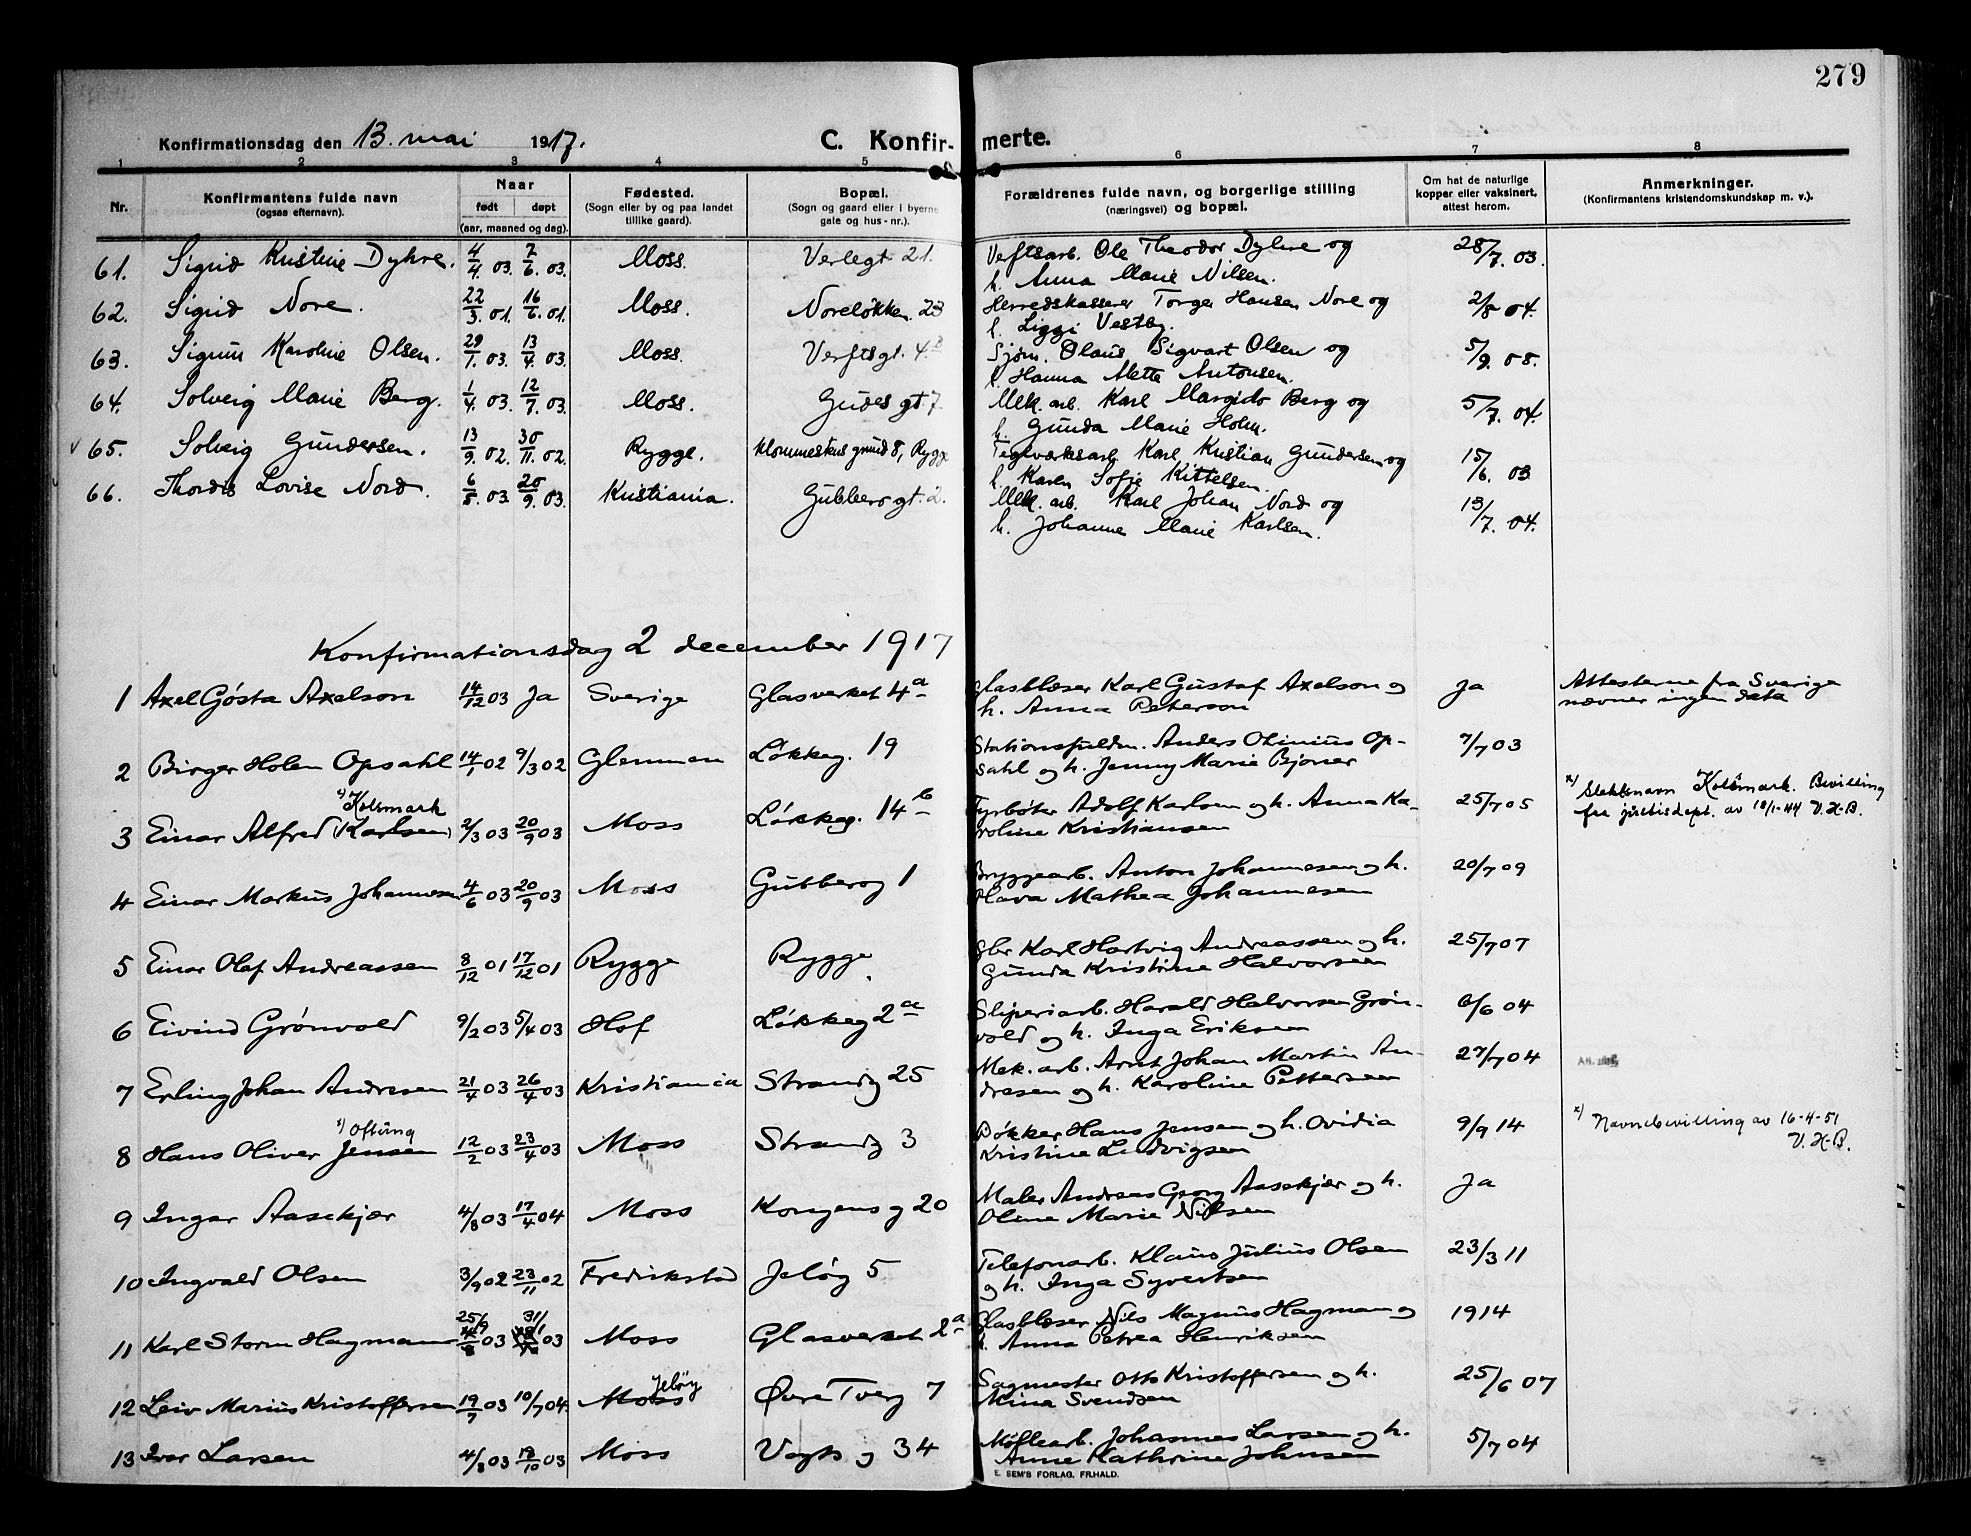 279
Konfirmationsdag den 13. mai 1917.
C. Konfir- merte.
1 2 3 4 5 6 7 8
Nr.
Konfirmantens fulde navn
(ogsaa efternavn).
Naar
født døpt
(aar, maaned og dag).
Fødested.
(Sogn eller by og paa landet
tillike gaard).
Bopæl.
(Sogn og gaard eller i byerne
gate og hus-nr.).
Forældrenes fulde navn, og borgerlige stilling
(næringsvei) og bopæl.
Om hat de naturlige
kopper eller vaksinert,
attest herom.
Anmerkninger.
(Konfirmantens kristendomskundskap m. v.).
61. Sigrid Kristine Dyhre. 4/4 03. 7/6. 03. Moss. Verlegt. 21. Verftsarb. Ole Theodor Dyhre og 28/7. 03.
h. Anna Marie Nilsen.
62. Sigrid Nore. 22/3. 01. 16/6. 01. Moss. Noreløkken. 23 Herredskasserer Torger Hansen Nore og 2/8 04.
h. Liggi Vestby.
63. Sigrun Karoline Olsen. 29/1. 03. 13/4. 03. Moss. Verftsgt. 4 B Sjøm. Olaus Sigvart Olsen og 5/9. 08.
h. Hanna Mette Antonsen.
64. Solveig Marie Berg. 1/4. 03. 12/7. 03. Moss. Gudes gt 7. Mek. arb. Karl Margido Berg og 5/7. 04.
h. Gunda Marie Holm.
v 65. Solveig Gundersen. 13/9. 02. 30/11. 02. Rygge. Klommestens grund 8, Rygge Teglverksarb. Karl Kristian Gundersen og 15/6. 03
h. Karen Sofie Kittelsen.
66. Thordis Lovise Nord. 6/8. 03. 20/9. 03. Kristiania. Gubberogt. 2. Mek. arb. Karl Johan Nord og 13/7. 04.
h. Johanne Marie Karlsen.
Konfirmationsdag 2 december 1917
1 Axel Gösta Axelson 14/12 03 Ja Sverige Glasverket 4 a Glasblæser Karl Gustaf Axelson og Ja Attesterne fra Sverige
h. Anna Peterson nævner ingen data
2 Birger Holen Opsahl 14/1 02 9/3 02 Glemmen Løkkeg. 19 Stationsfuldm. Anders Olinius Op- 7/7 03
sahl og h. Jenny Marie Bjoner
x) Kolsmark x) Slektsnavn Kolsmark. Bevilling
3 Einar Alfred (Karlsen) 2/3 03 20/9 03 Moss Løkkeg. 14 b Fyrbøter Adolf Karlsen og h. Anna Ka- 25/7 05 fra justisdept. av 18/1-44 V. H-B.
roline Kristiansen
4 Einar Markus Johannesen 4/6 03 20/9 03 Moss Gubberog 1 Bryggearb. Anton Johannesen og h. 20/7 09
Olava Mathea Johannesen
5 Einar Olaf Andreassen 8/12 01 17/12 01 Rygge Rygge Gbr Karl Hartvig Andreassen og h. 25/7 07
Gunda Kristine Halvorsen
6 Eivind Grönvold 9/2 03 5/4 03 Hof Løkkeg 2 a Sliperiarb. Harald Halvorsen Grön- 6/6 04
vold og h. Inga Eriksen
7 Erling Johan Andresen 21/4 03 26/4 03 Kristiania Strandg 25 Mek. arb. Arnt Johan Martin An- 27/7 04 Att. utst.
dresen og h. Karoline Pettersen
x) Oftung
8 Hans Oliver Jensen 12/2 03 23/4 03 Moss Strandg 3 Bøkker Hans Jensen og h. Ovidia 9/9 14 x) Navnebevilling av 16-4-51
Kristine Ludvigsen V. H-B.
9 Ingar Aasekjær 4/8 03 17/4 04 Moss Kongens g 20 Maler Andreas Georg Aasekjær og h. Ja
Oline Marie Nilsen
10 Ingvald Olsen 3/9 02 23/11 02 Fredrikstad Jeløg 5 Telefonarb. Klaus Julius Olsen 23/3 11
og h. Inga Syvertsen
25/9 31/1
11 Karl Storm Hagman 03 03 Moss Glasverket 2 a Glasblæser Nils Magnus Hagman og 1914
h. Anna Petrea Henriksen
Jeløy
12 Leiv Marius Kristoffersen 19/7 03 10/7 04. Moss Øvre Tverg 7 Sagmester Otto Kristoffersen og h. 25/6 07
Mina Svendsen
13 Ivar Larsen 4/8 03 18/10 03 Moss Vogts g 34 Møllearb. Johannes Larsen og h. 5/7 04
Anne Kathrine Johnsen
E. SEM'S FORLAG, FR.HALD.